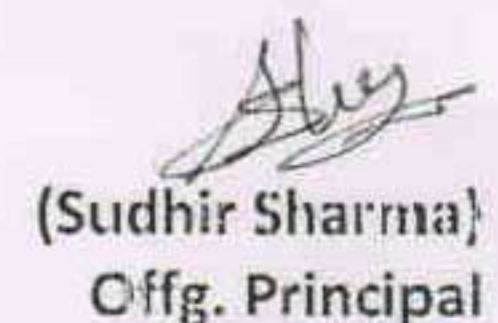 (Sudhir Sharma)
Offg. Principal